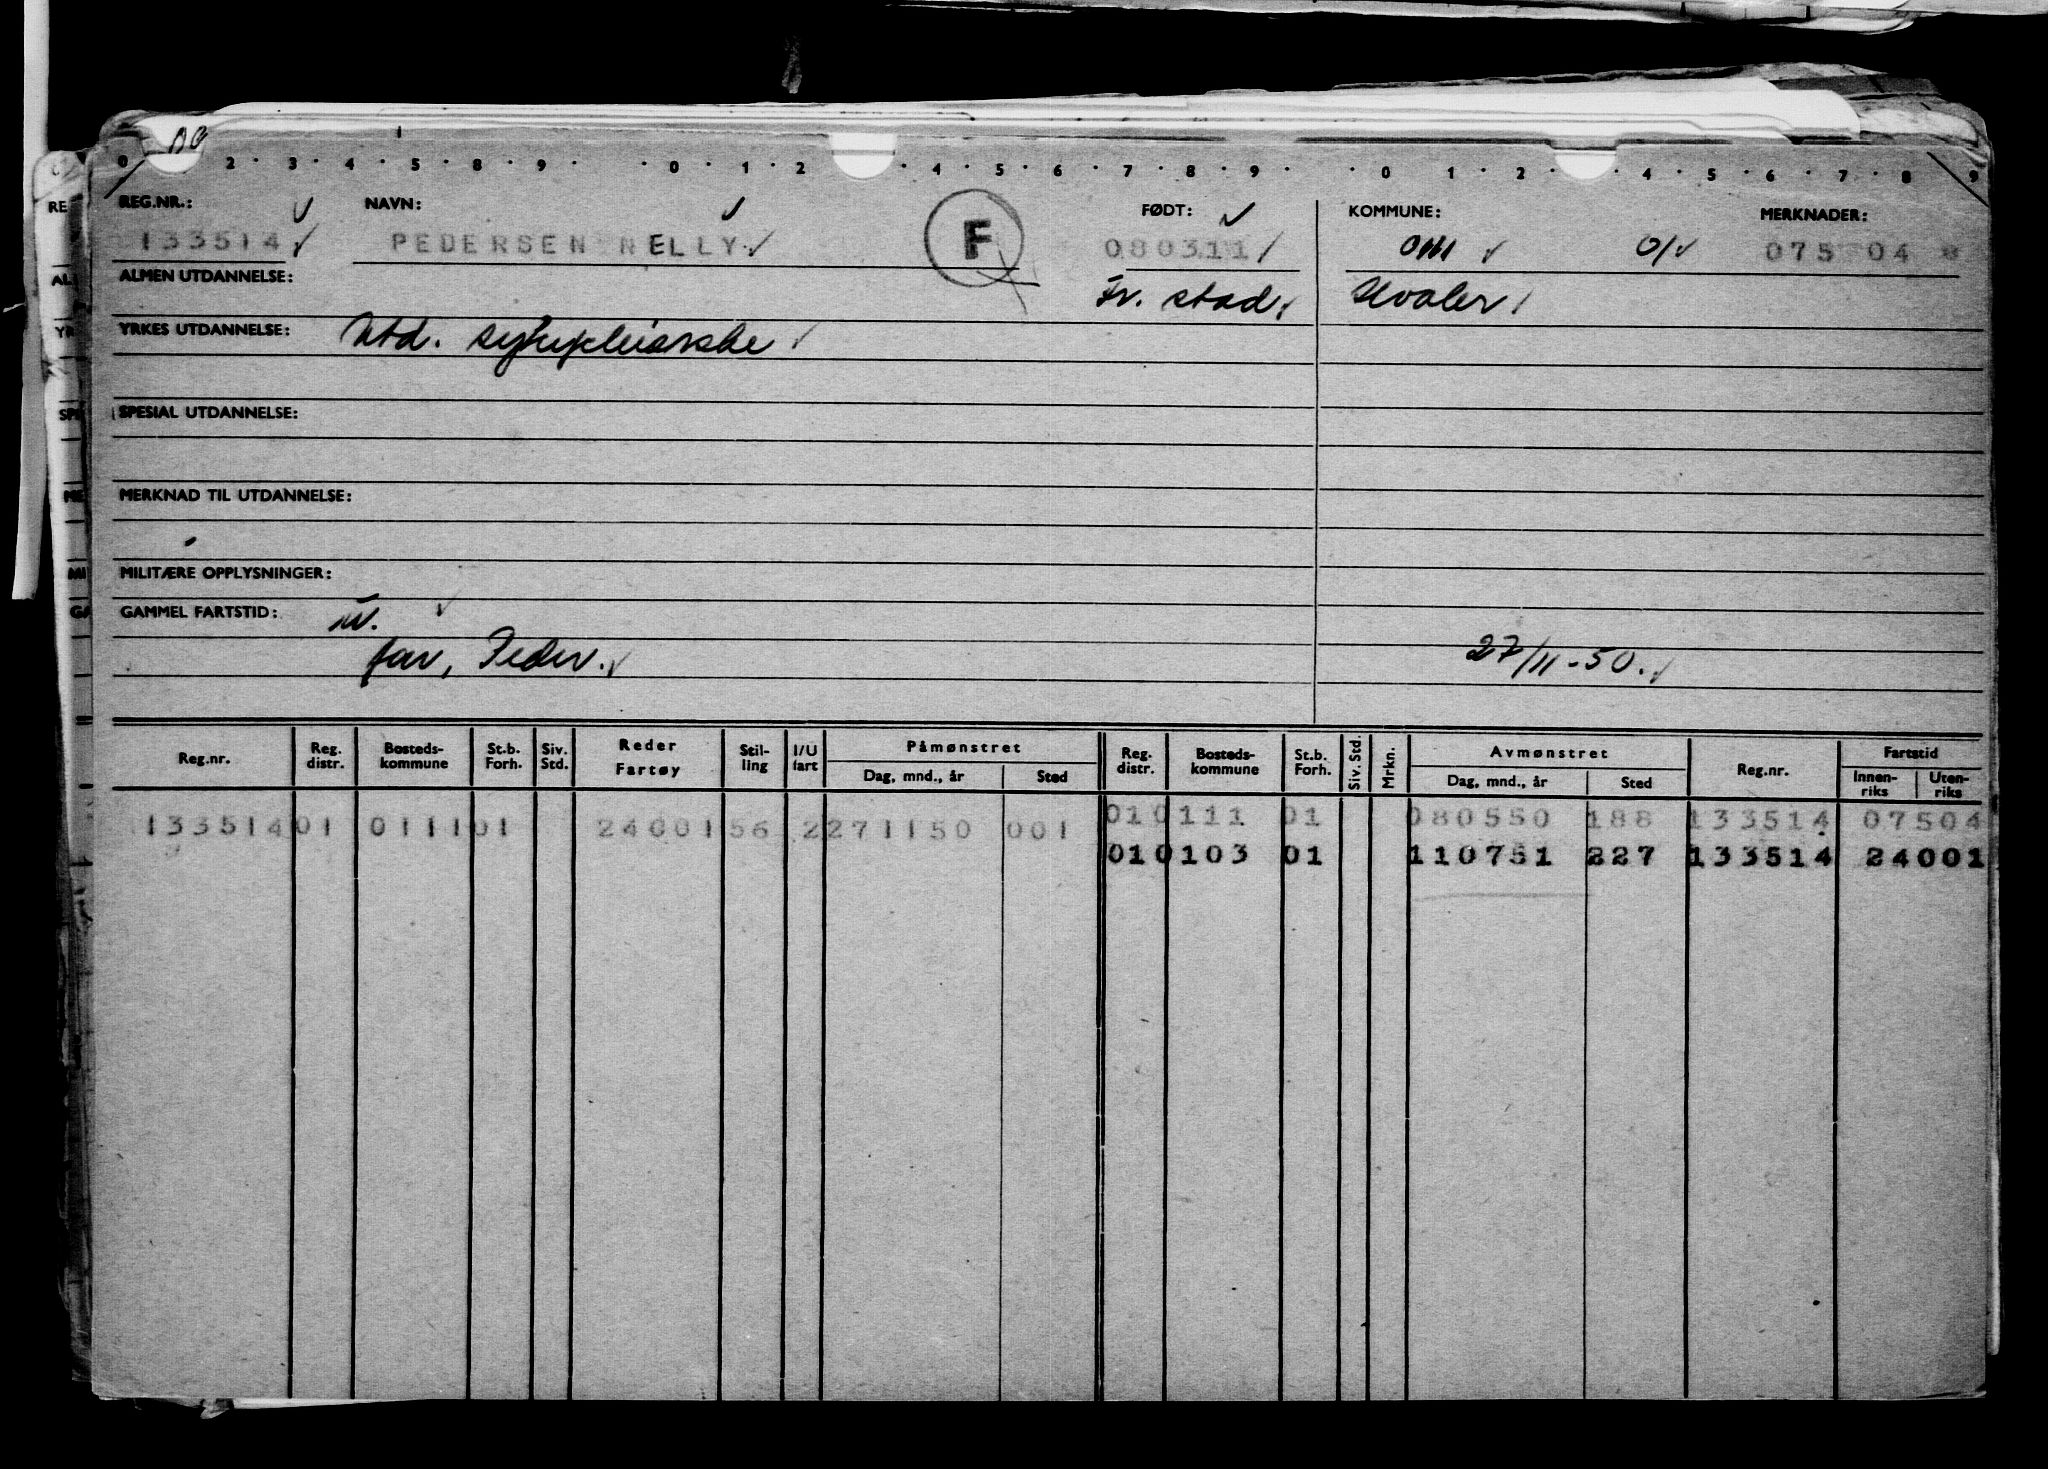 0 2 3 4 5 8 9 0 1 2 4 5 6 7 8 9 0 1 2 4 5 6 7 8 9
REG.NR.: NAVN: FØDT: KOMMUNE: MERKNADER:
133514 PEDERSEN NELLY F 080311 0111 01 075 04
ALMEN UTDANNELSE: Fr. stad. Hvaler
YRKES UTDANNELSE: Utd. sykepleierske
SPESIAL UTDANNELSE:
MERKNAD TIL UTDANNELSE:
MILITÆRE OPPLYSNINGER:
GAMMEL FARTSTID:
far, Peder. 27/11-50.
Reg.nr. Reg. distr. Bosteds-kommune St.b. Forh. Siv. Std. Reder Fartøy Stil-ling I/U fart Påmønstret Dag, mnd., år Sted Reg. distr. Bosteds-kommune St.b. Forh. Siv. Std. Mrkn. Avmønstret Dag, mnd., år Sted Reg.nr. Fartstid Innen-riks Uten-riks
133514 01 0111 01 24001 56 2 271150 001 01 0111 01 080550 188 133514 07504
01 0103 01 110751 227 133514 24001